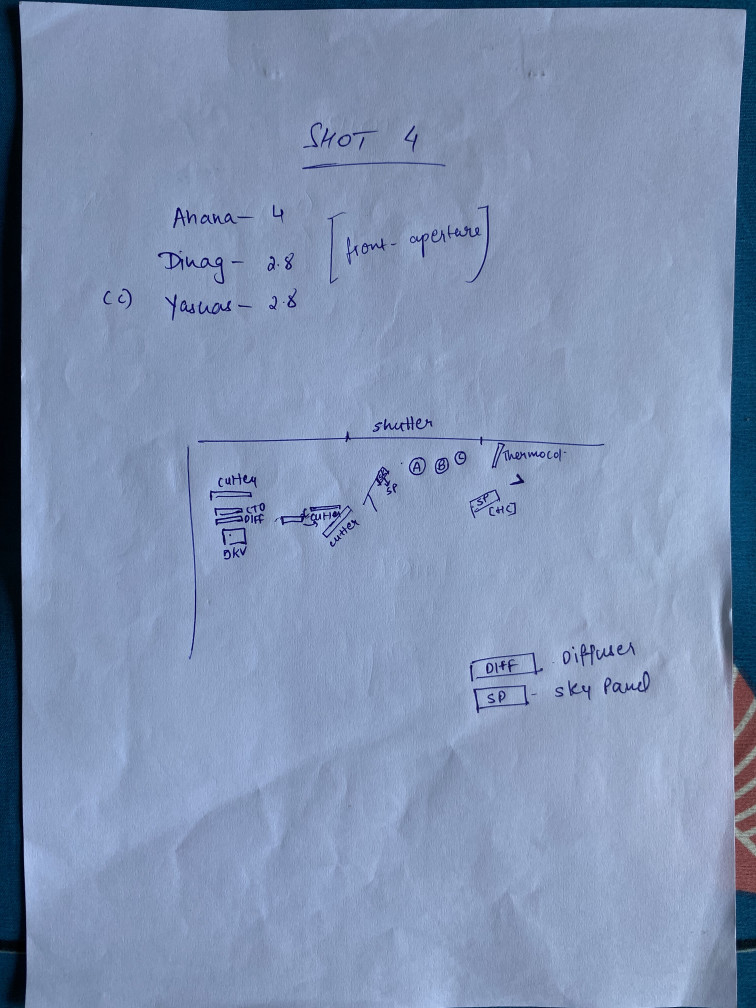 SHOT 4
Ahana - 4
Dinag - 2.8
(C) Yashas - 2.8
[front-aperture]
shutter
A B C
Thermocol
SP
SP
cutter
CTO
DIFF
cutter
cutter
5KV
DIFF - Diffuser
SP - Sky Panel